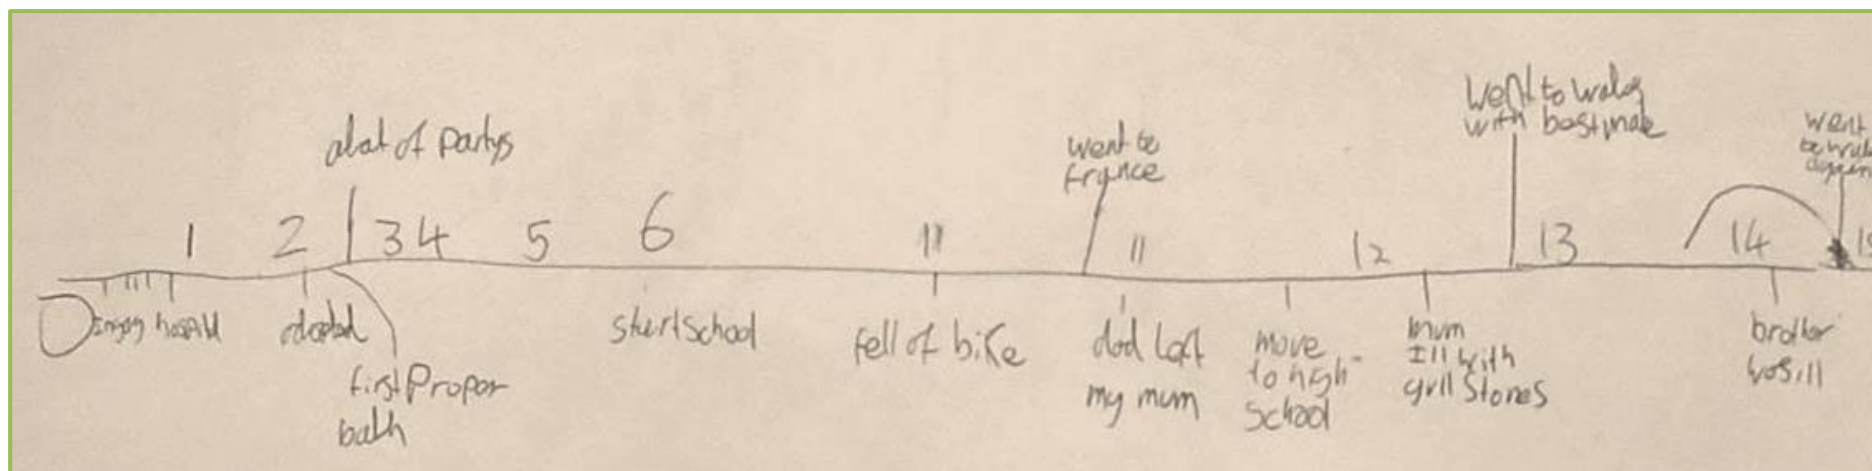 alot of partys
went to
france
went to wales
with bestmate
went
1
2
3 4
5
6
11
11
12
13
14
hospital
adopted
first Proper
bath
start school
fell of bike
dad left
my mum
move
to high
School
mum
Ill with
gall Stones
brother
was ill